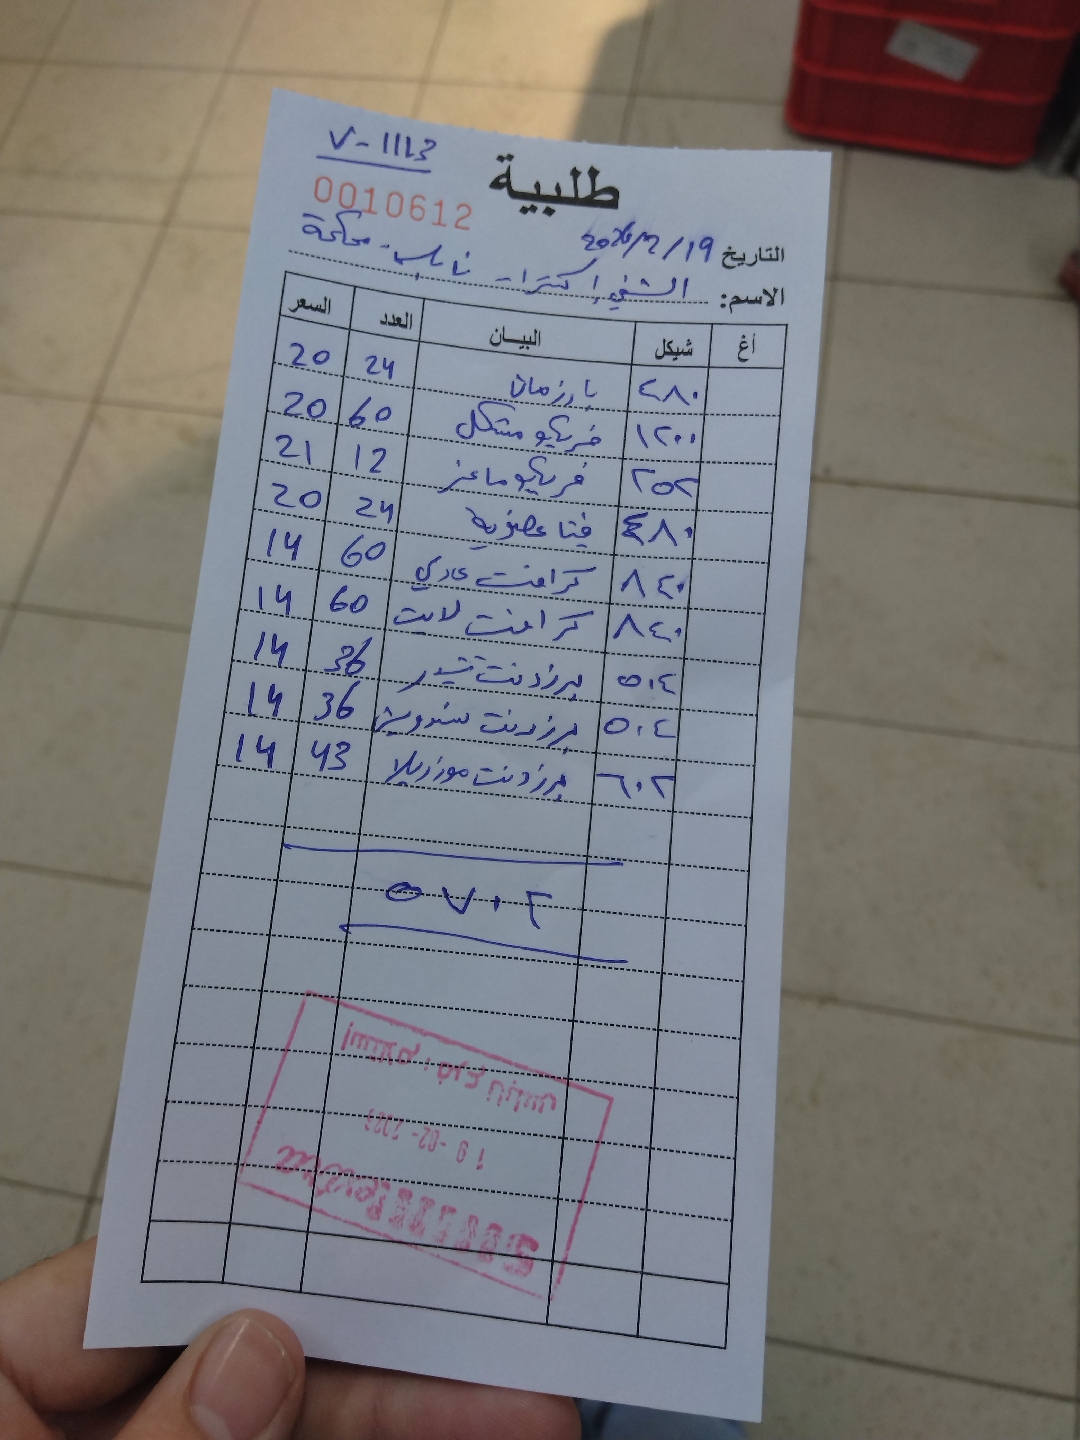 V-1113
طلبية
0010612
التاريخ 19/2/2026
الاسم: الشني إكسترا - نابلس - محكمة
أغ شيكل البيـــان العدد السعر
٤٨٠ بارزمان 24 20
١٢٠٠ فريكو مشكل 60 20
٢٥٢ فريكو ماعز 12 21
٤٨٠ فيتا عضوية 24 20
٨٤٠ كرافت عادي 60 14
٨٤٠ كرافت لايت 60 14
٥٠٤ برزدنت تشيدر 36 14
٥٠٤ برزدنت سندويش 36 14
٦٠٢ برزدنت موزريلا 43 14
٥٧٠٢